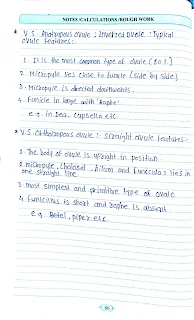 NOTES/CALCULATIONS/ROUGH WORK
* V.S. Anatropous ovule : Inverted ovule : Typical
ovule features:-
1. It is the most common type of ovule (80%).
2. Micropyle lies close to funicle (side by side)
3. Micropyle is directed downwards.
4. Funicle is large with 'Raphe'
e.g. in Pea, Capsella etc.
* V.S Orthotropous ovule : Straight ovule features:-
1. The body of ovule is upright in position.
2. micropyle, chalazal, hilum and Funiculus lies in
one straight line
3. most simplest and primitive type of ovule
4. Funiculus is short and raphe is absent
e.g. Betel, piper etc.